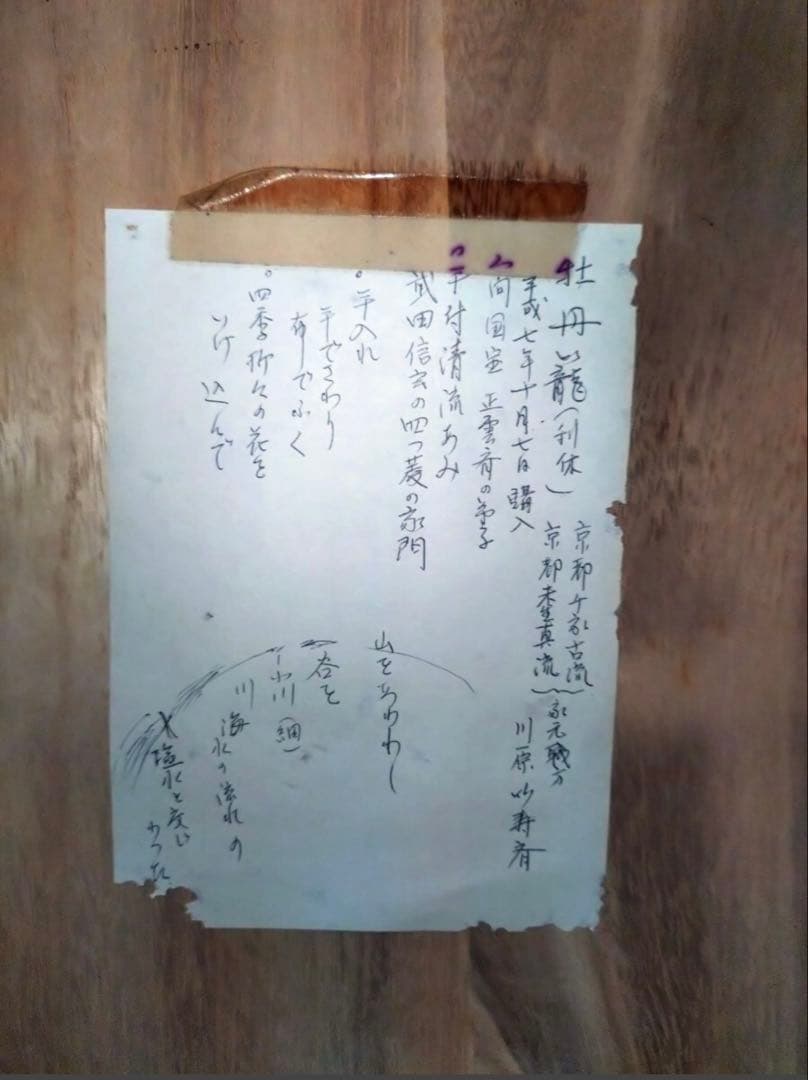 牡丹籠（利休）
平成七年十月七日購入
人間国宝 正雲斉の弟子
手付清流あみ
武田信玄の四つ菱の家門
○手入れ
手でさわり
布でふく
○四季折々の花を
いけ込んで
京都千家古流
京都未生真流
家元
川原
斉
山をあらわし
谷を
小川（細）
川
海水の流れの
塩水と